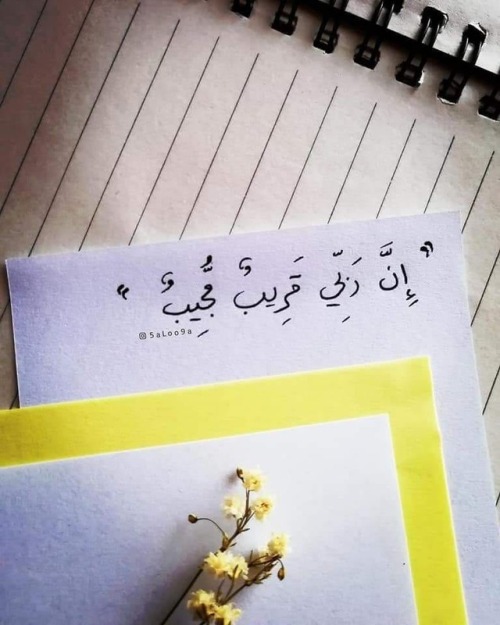 ” إِنَّ رَبِّي قَرِيبٌ مُّجِيبٌ “
5aLoo9a